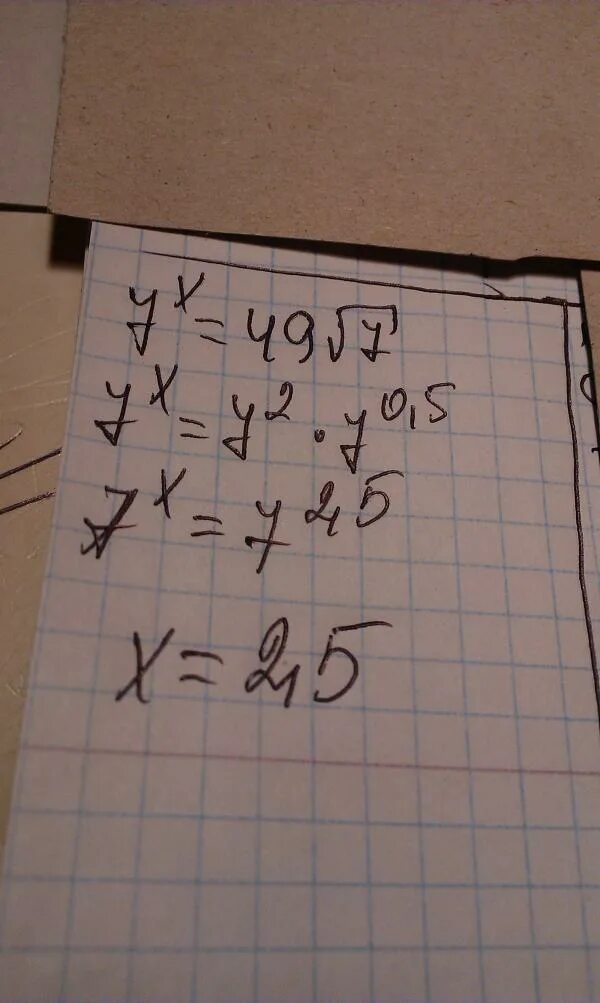 7^x = 49√7
7^x = 7^2 · 7^0,5
7^x = 7^2,5
x = 2,5